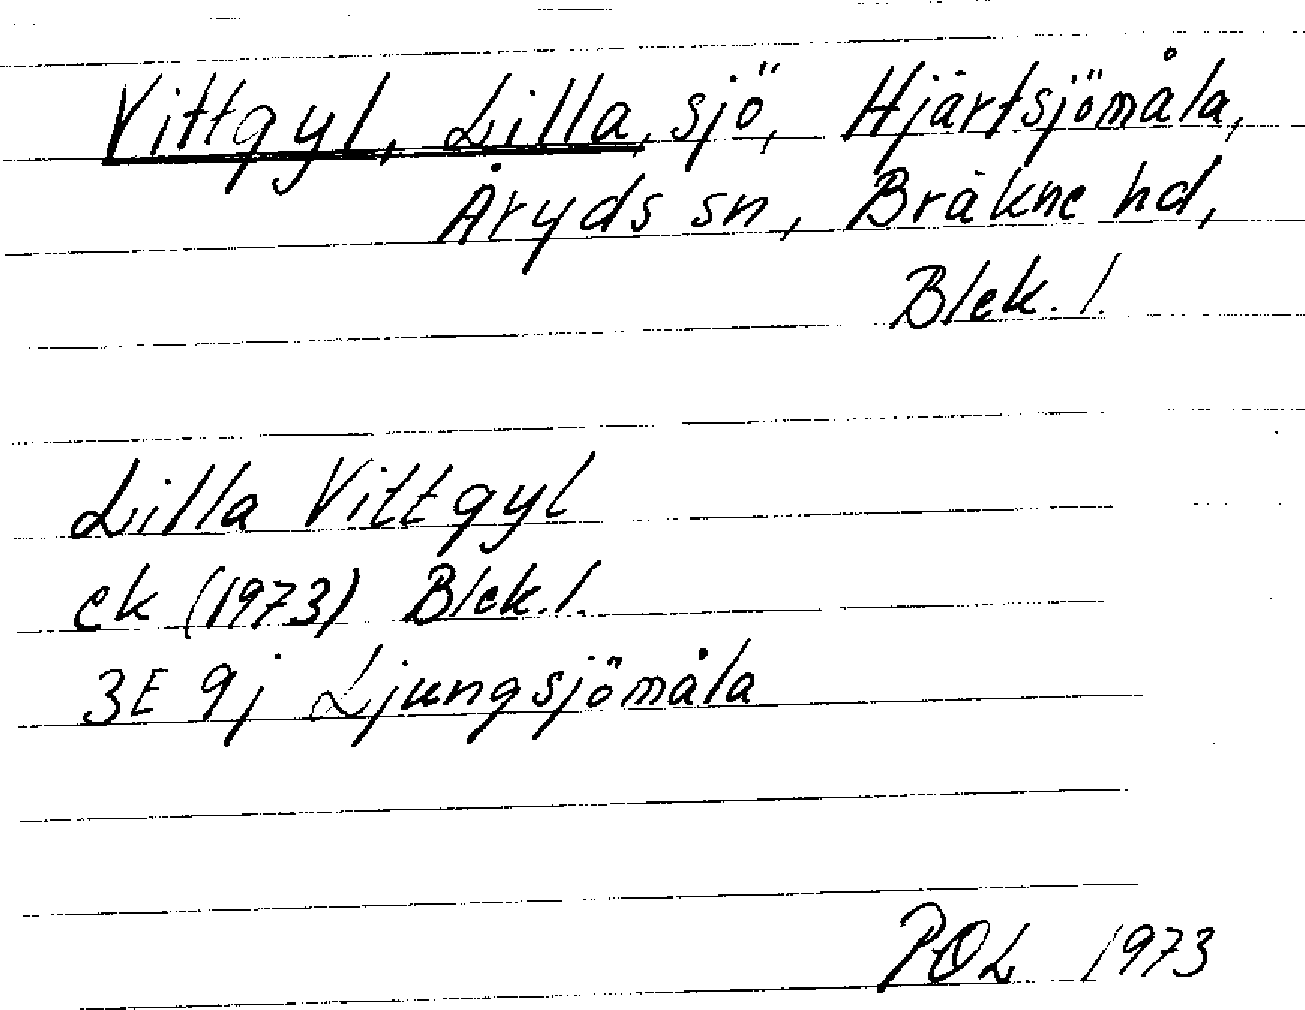 Vittgyl, Lilla, sjö, Hjärtsjömåla,
Åryds sn, Bräkne hd,
Blek. l.
Lilla Vittgyl
ek (1973) Blek. l.
3E 9j Ljungsjömåla
POL 1973